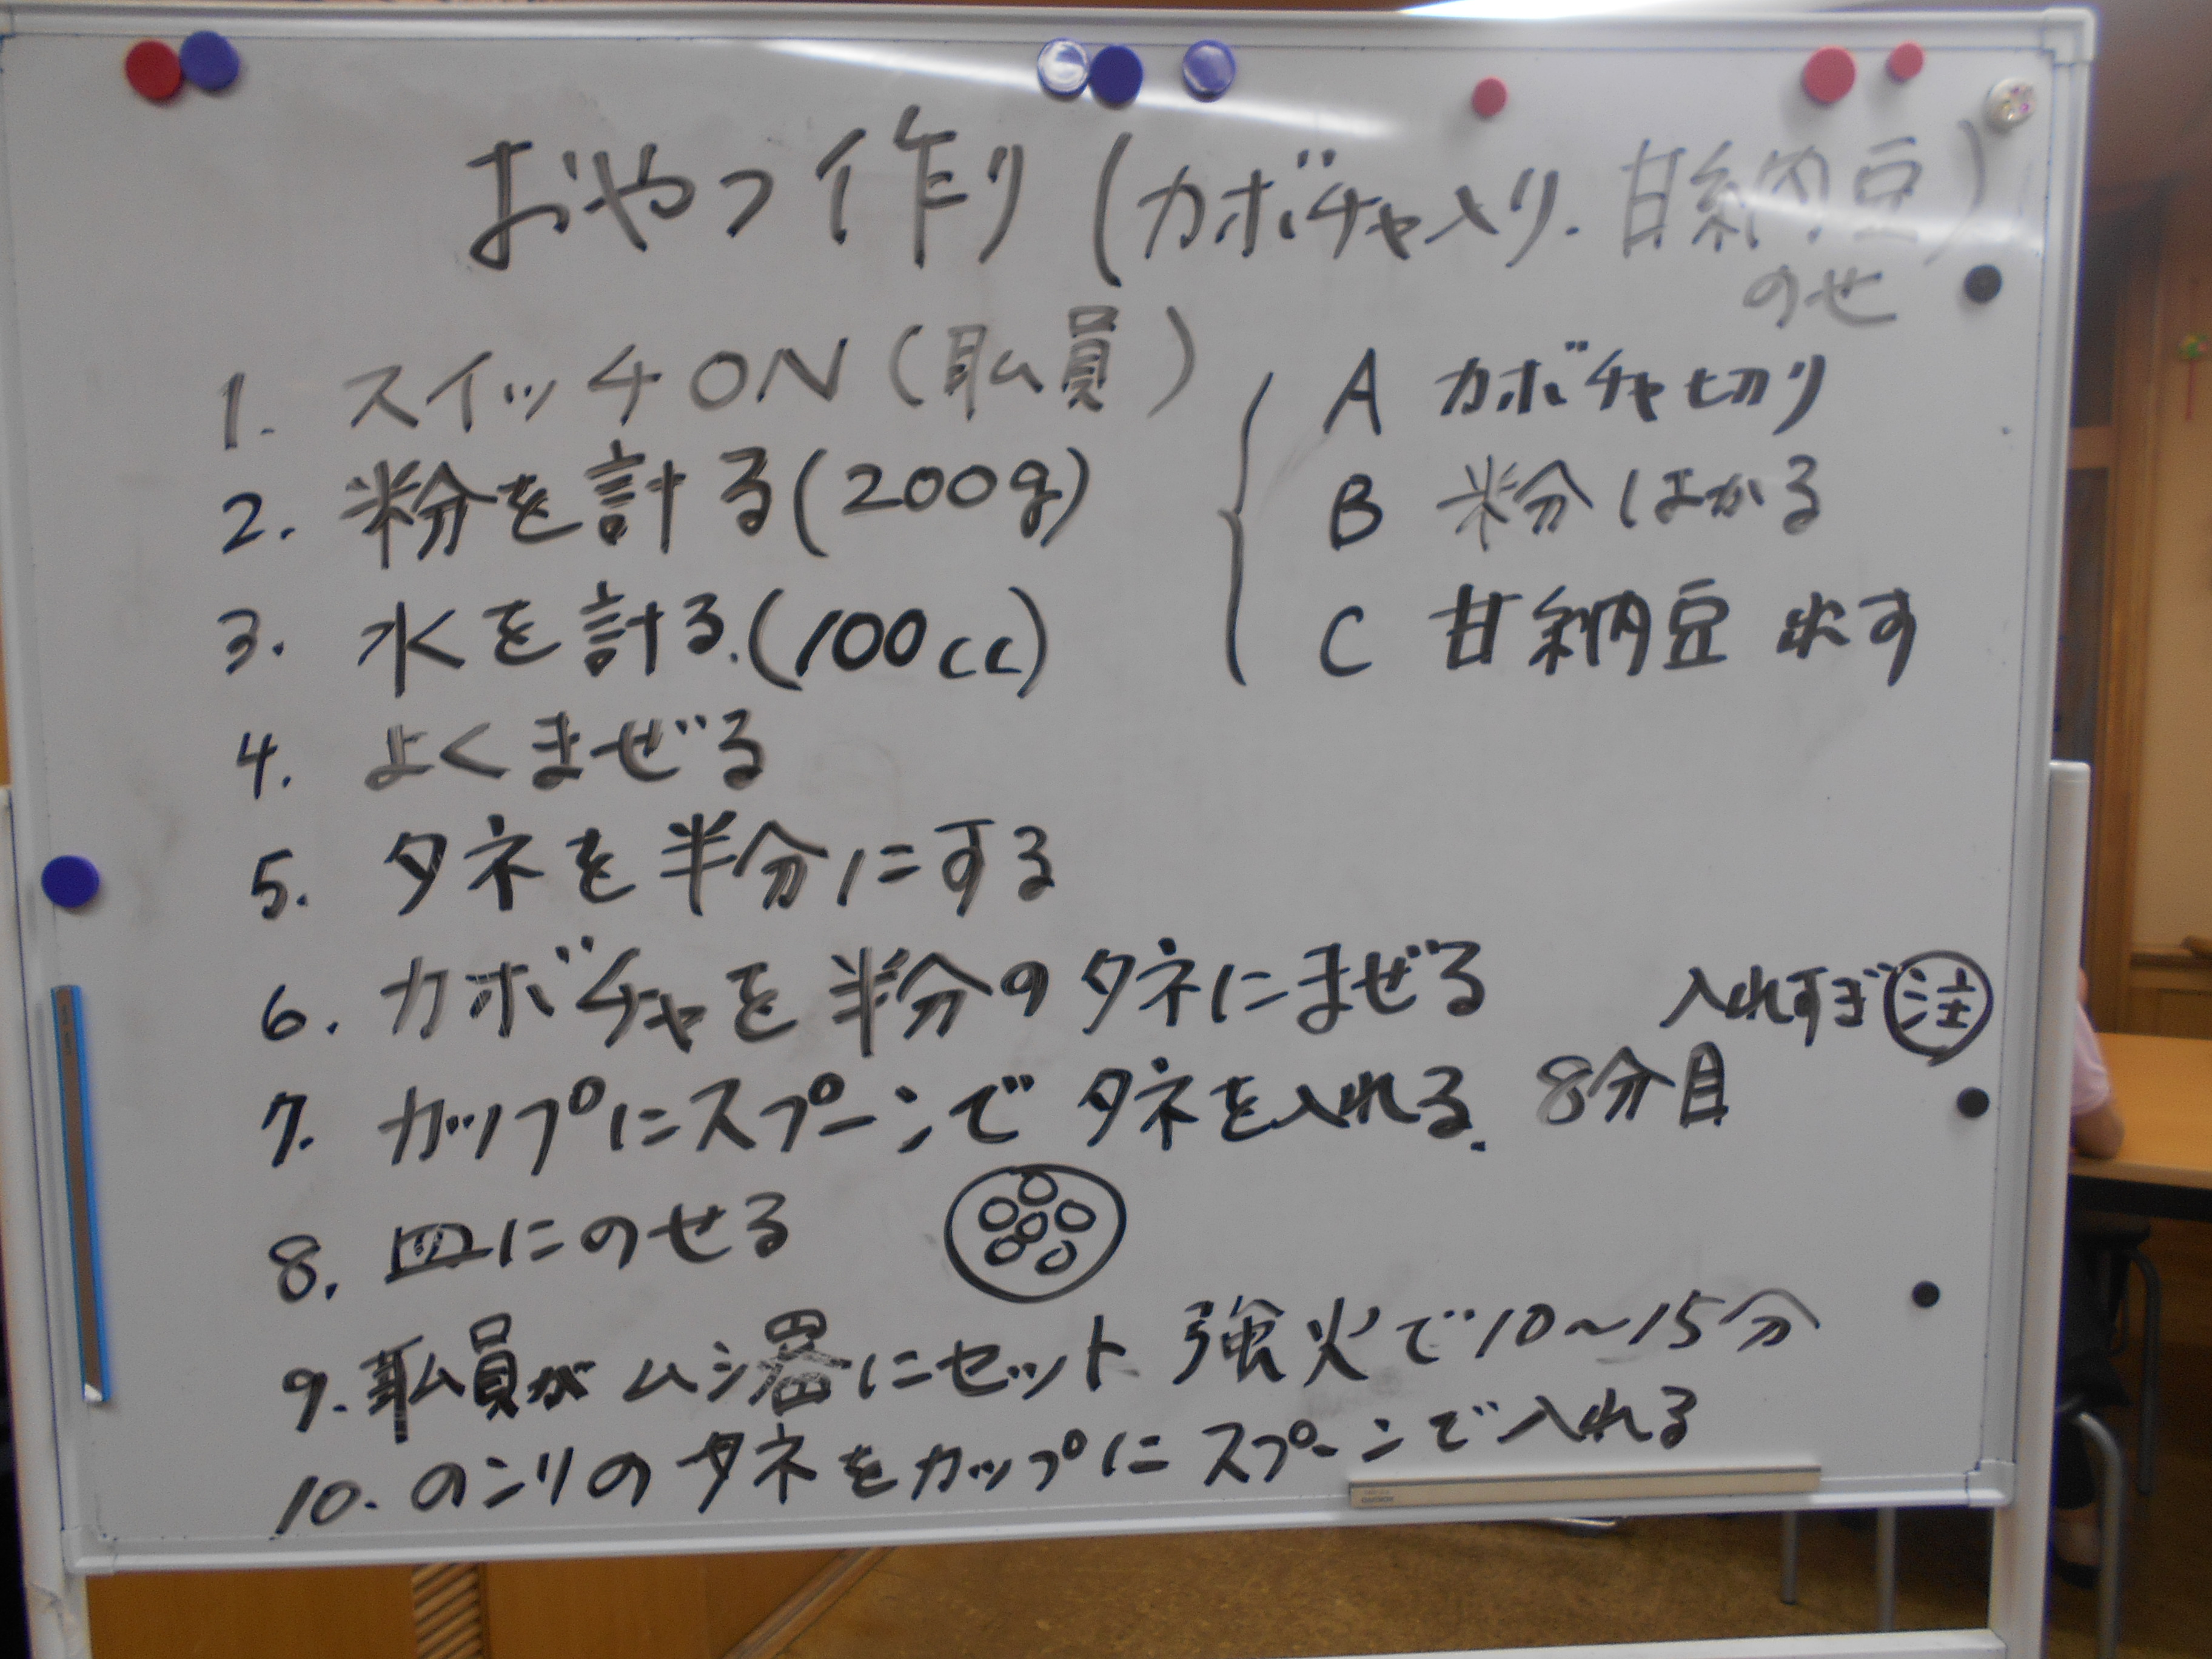 おやつ作り(カボチャ入り.甘納豆)
のせ
1. スイッチON(职員)
2. 粉を計る(200g)
3. 水を計る.(100cc)
A カボチャ切り
B 粉はかる
C 甘納豆 出す
4. よくまぜる
5. タネを半分にする
6. カボチャを半分のタネにまぜる
入れすぎ注
7. カップにスプーンでタネを入れる. 8分目
8. 皿にのせる
9. 职員がムシ器にセット 強火で10〜15分
10. のこりのタネをカップにスプーンで入れる